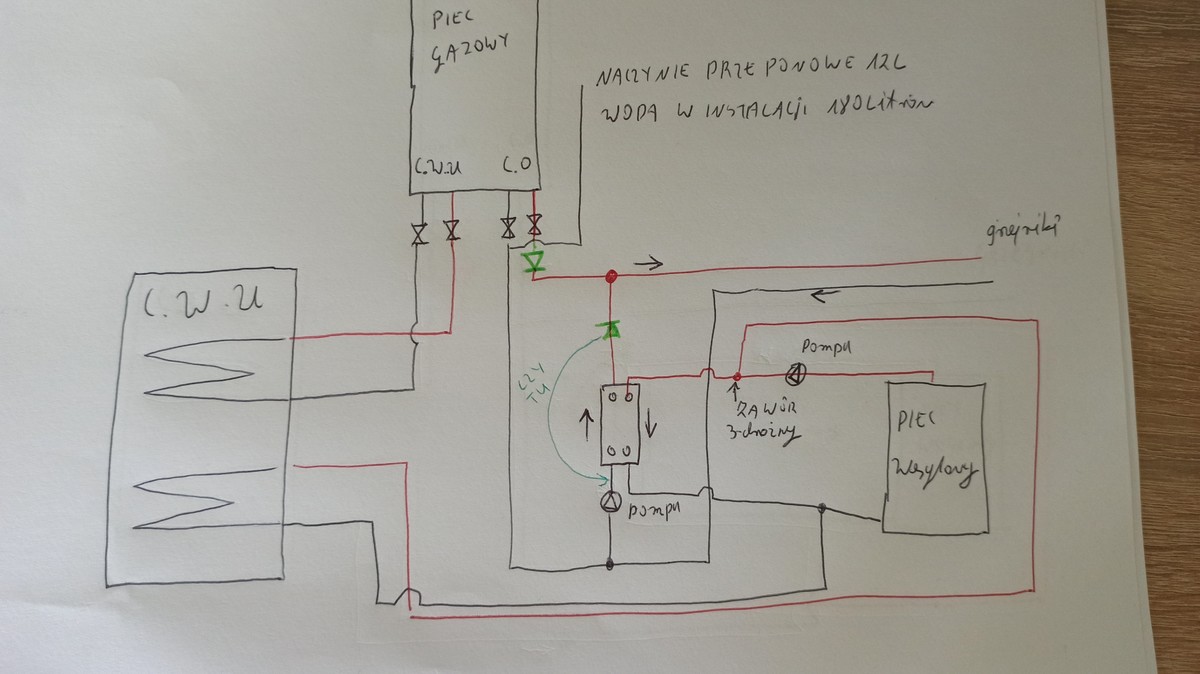 PIEC
GAZOWY
NACZYNIE PRZEPONOWE 12L
WODA W INSTALACJI 180 Litrów
C.W.U C.O
grzejniki
C.W.U
CZY
TU
Pompa
ZAWÓR
3-drożny
PIEC
Węglowy
pompa